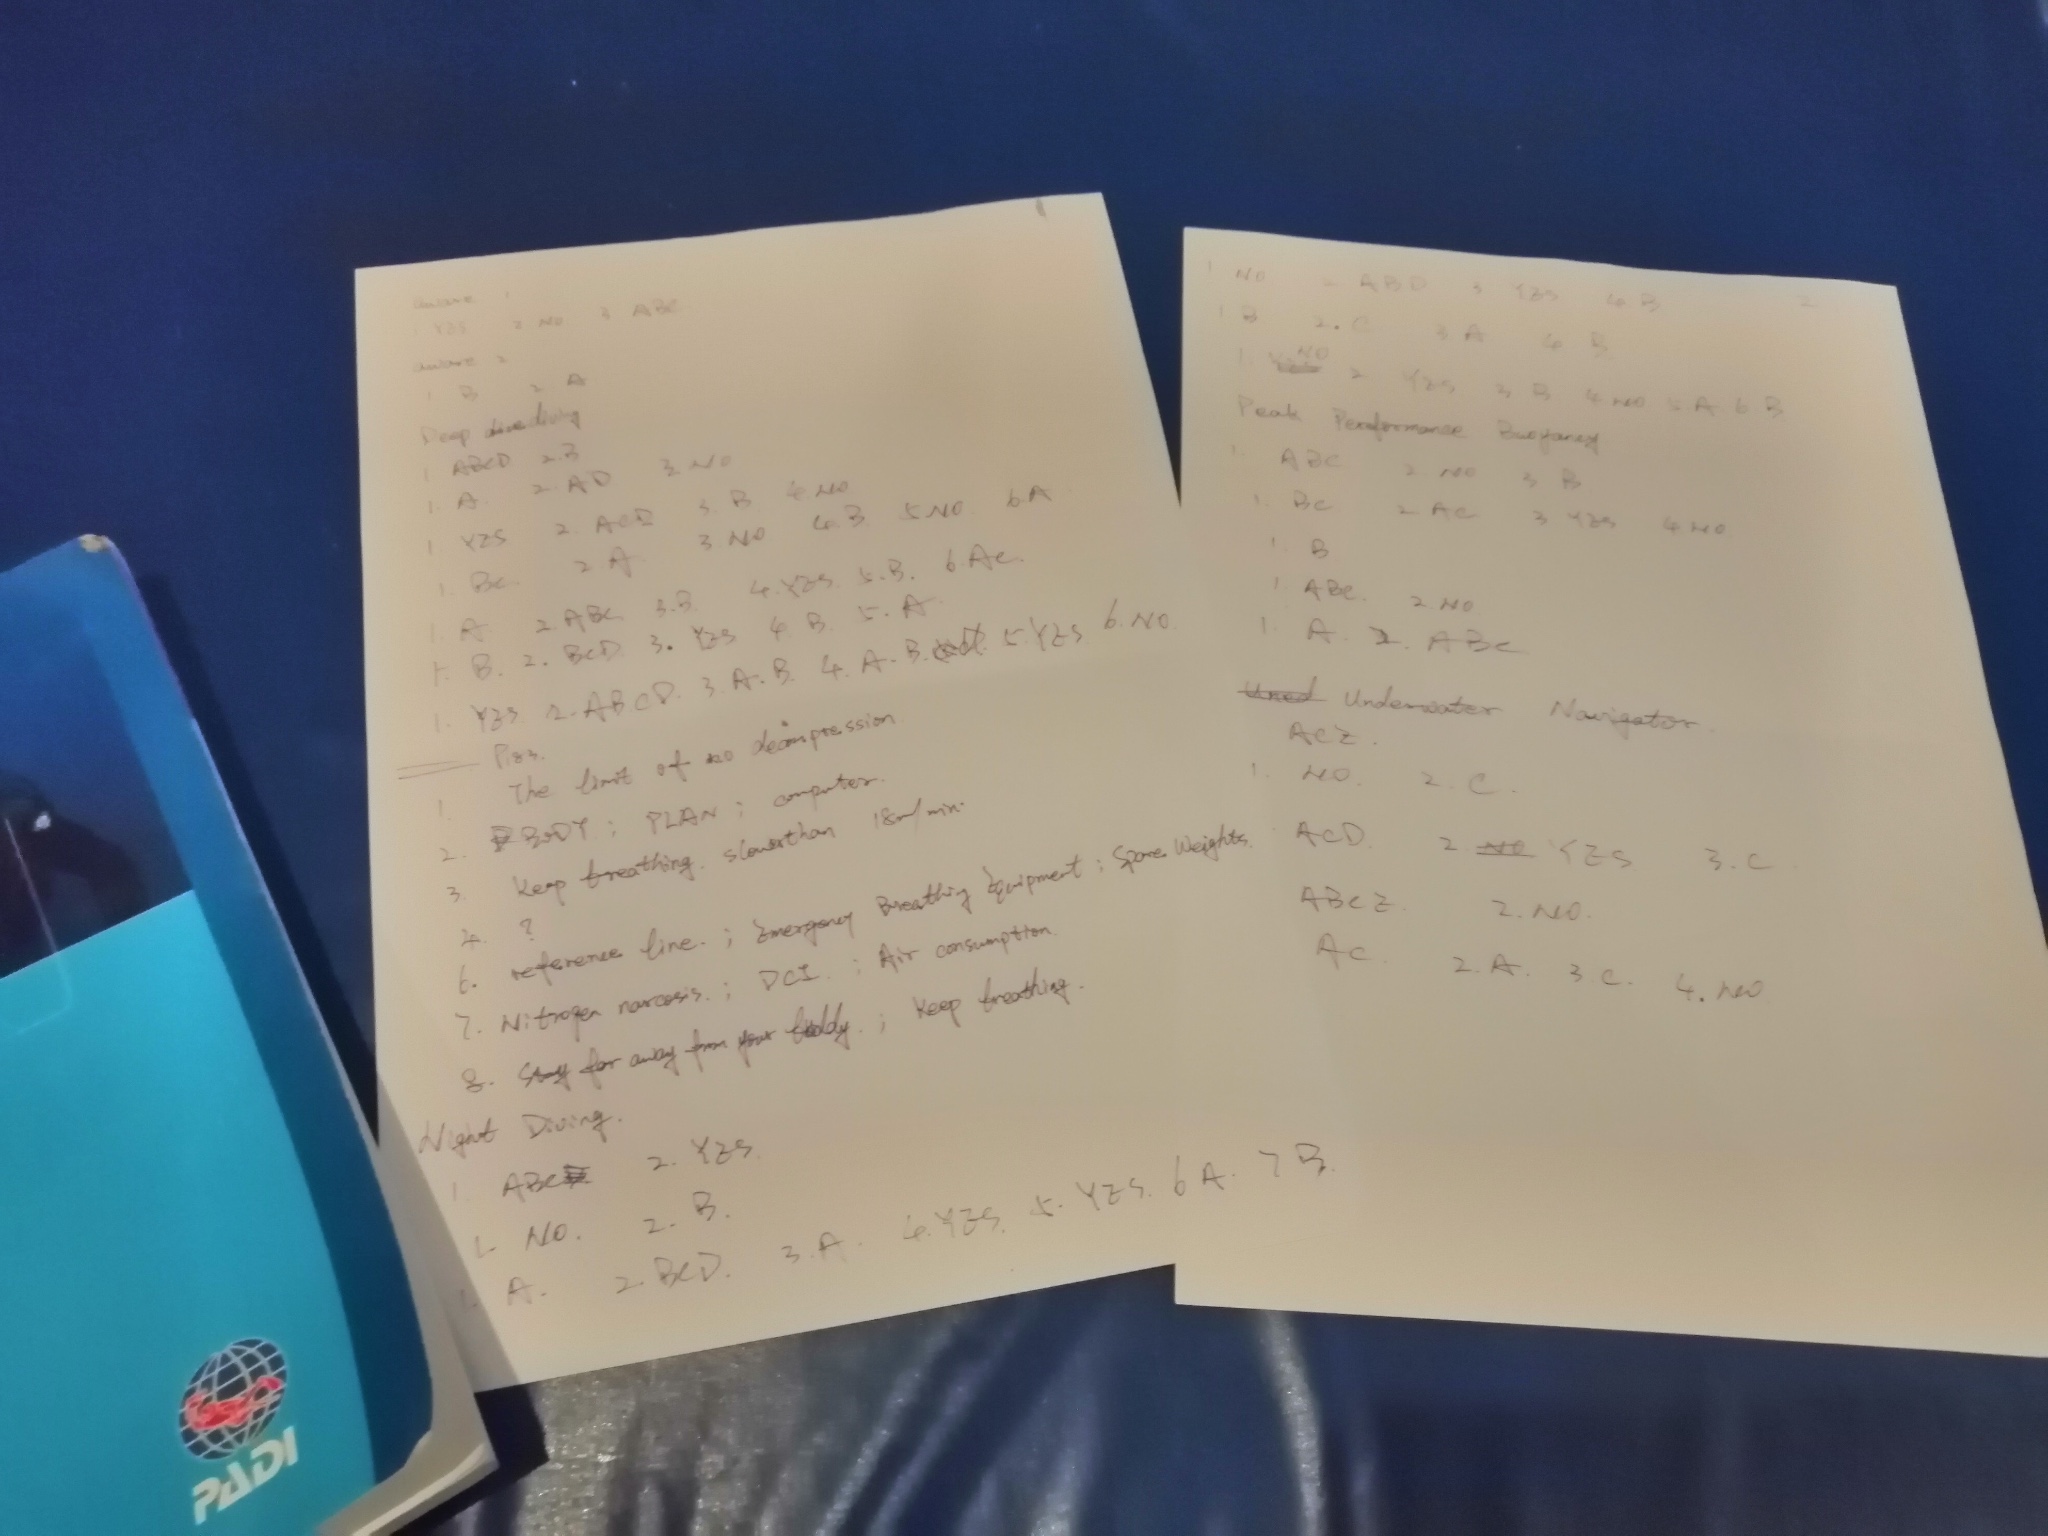 aware 1
1 YES 2 NO 3 ABC
aware 2
1 B 2 A
Deep diving
1 ABCD 2.B
1. A. 2. AD 3. NO
1. YES 2. ACD 3. B 4. NO
1. BC. 2 A. 3 NO 4.B 5.NO 6.A
1. A 2. ABC 3.B 4.YES. 5.B. 6.AC.
1. B. 2. BCD 3. YES 4 B. 5. A.
1. YES. 2. ABCD. 3. A.B. 4. A.B. 5. YES 6. NO.
1. The limit of no decompression
2. BODY; PLAN; computer.
3. Keep breathing. slower than 18m/min.
4. ?
6. reference line.; Emergency Breathing Equipment; Spare Weights.
7. Nitrogen narcosis.; DCI.; Air consumption.
8. Stay far away from your buddy.; Keep breathing.
Night Diving.
1 ABC 2. YES.
1. NO. 2. B.
1. A. 2. BCD. 3. A. 4. YES. 5. YES. 6 A. 7 B.
2
1. NO 2 ABD 3 YES 4 B
1 B 2. C 3. A 4 B.
1. NO 2 YES 3 B 4 NO 5 A 6 B
Peak Performance Buoyancy
1. ABC 2 NO 3 B
1. BC 2 AC 3 YES 4 NO
1. B
1. ABC. 2 NO
1. A. 2. ABC
Underwater Navigator.
ACE.
1. NO. 2. C.
ACD. 2 YES 3. C.
ABCE. 2. NO.
AC. 2. A. 3 C. 4. NO
PADI